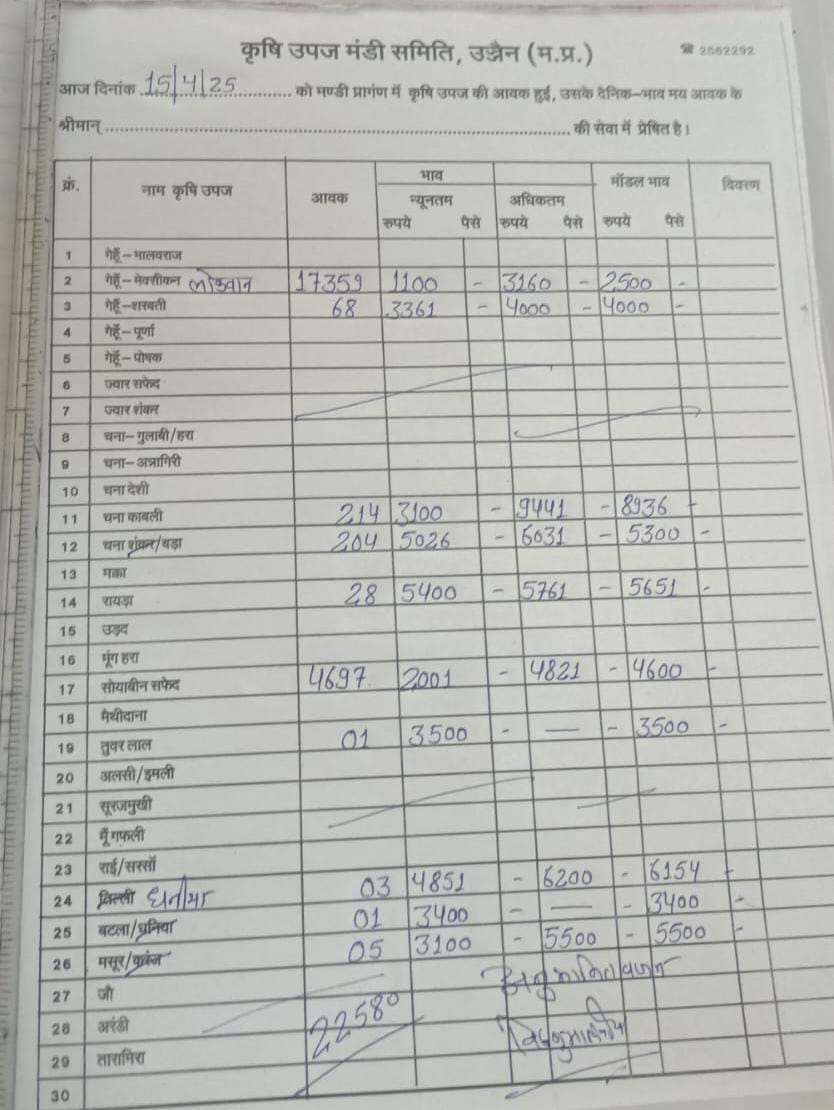 कृषि उपज मंडी समिति, उज्जैन (म.प्र.) ☎ 2562292
आज दिनांक 15/4/25 को मण्डी प्रागंण में कृषि उपज की आवक हुई, उसके दैनिक-भाव मय आवक के
श्रीमान् की सेवा में प्रेषित है।
क्रं. नाम कृषि उपज आवक भाव मॉडल भाव विवरण
न्यूनतम अधिकतम
रुपये पैसे रुपये पैसे रुपये पैसे
1 गेहूँ-मालवराज
2 गेहूँ-मेक्सीकन लोकवान 17359 1100 - 3160 - 2500 -
3 गेहूँ-शरबती 68 3361 - 4000 - 4000 -
4 गेहूँ-पूर्णा
5 गेहूँ-पोषक
6 ज्वार सफेद
7 ज्वार शंकर
8 चना-गुलाबी/हरा
9 चना-अन्नागिरी
10 चना देशी
11 चना काबली 214 3100 - 9441 - 8936 -
12 चना शंकर/बड़ा 204 5026 - 6031 - 5300 -
13 मक्का
14 रायड़ा 28 5400 - 5761 - 5651 -
15 उड़द
16 मूंग हरा
17 सोयाबीन सफेद 4697 2001 - 4821 - 4600 -
18 मैथीदाना
19 तुवर लाल 01 3500 - — - 3500 -
20 अलसी/इमली
21 सूरजमुखी
22 मूँगफली
23 राई/सरसों
24 तिल्ली धनिया 03 4851 - 6200 - 6154 -
25 बटला/धनिया 01 3400 - — - 3400 -
26 मसूर/करंज 05 3100 - 5500 - 5500 -
27 जौ अनुमानित वजन
28 अरंडी 22580
29 तारामिरा
30